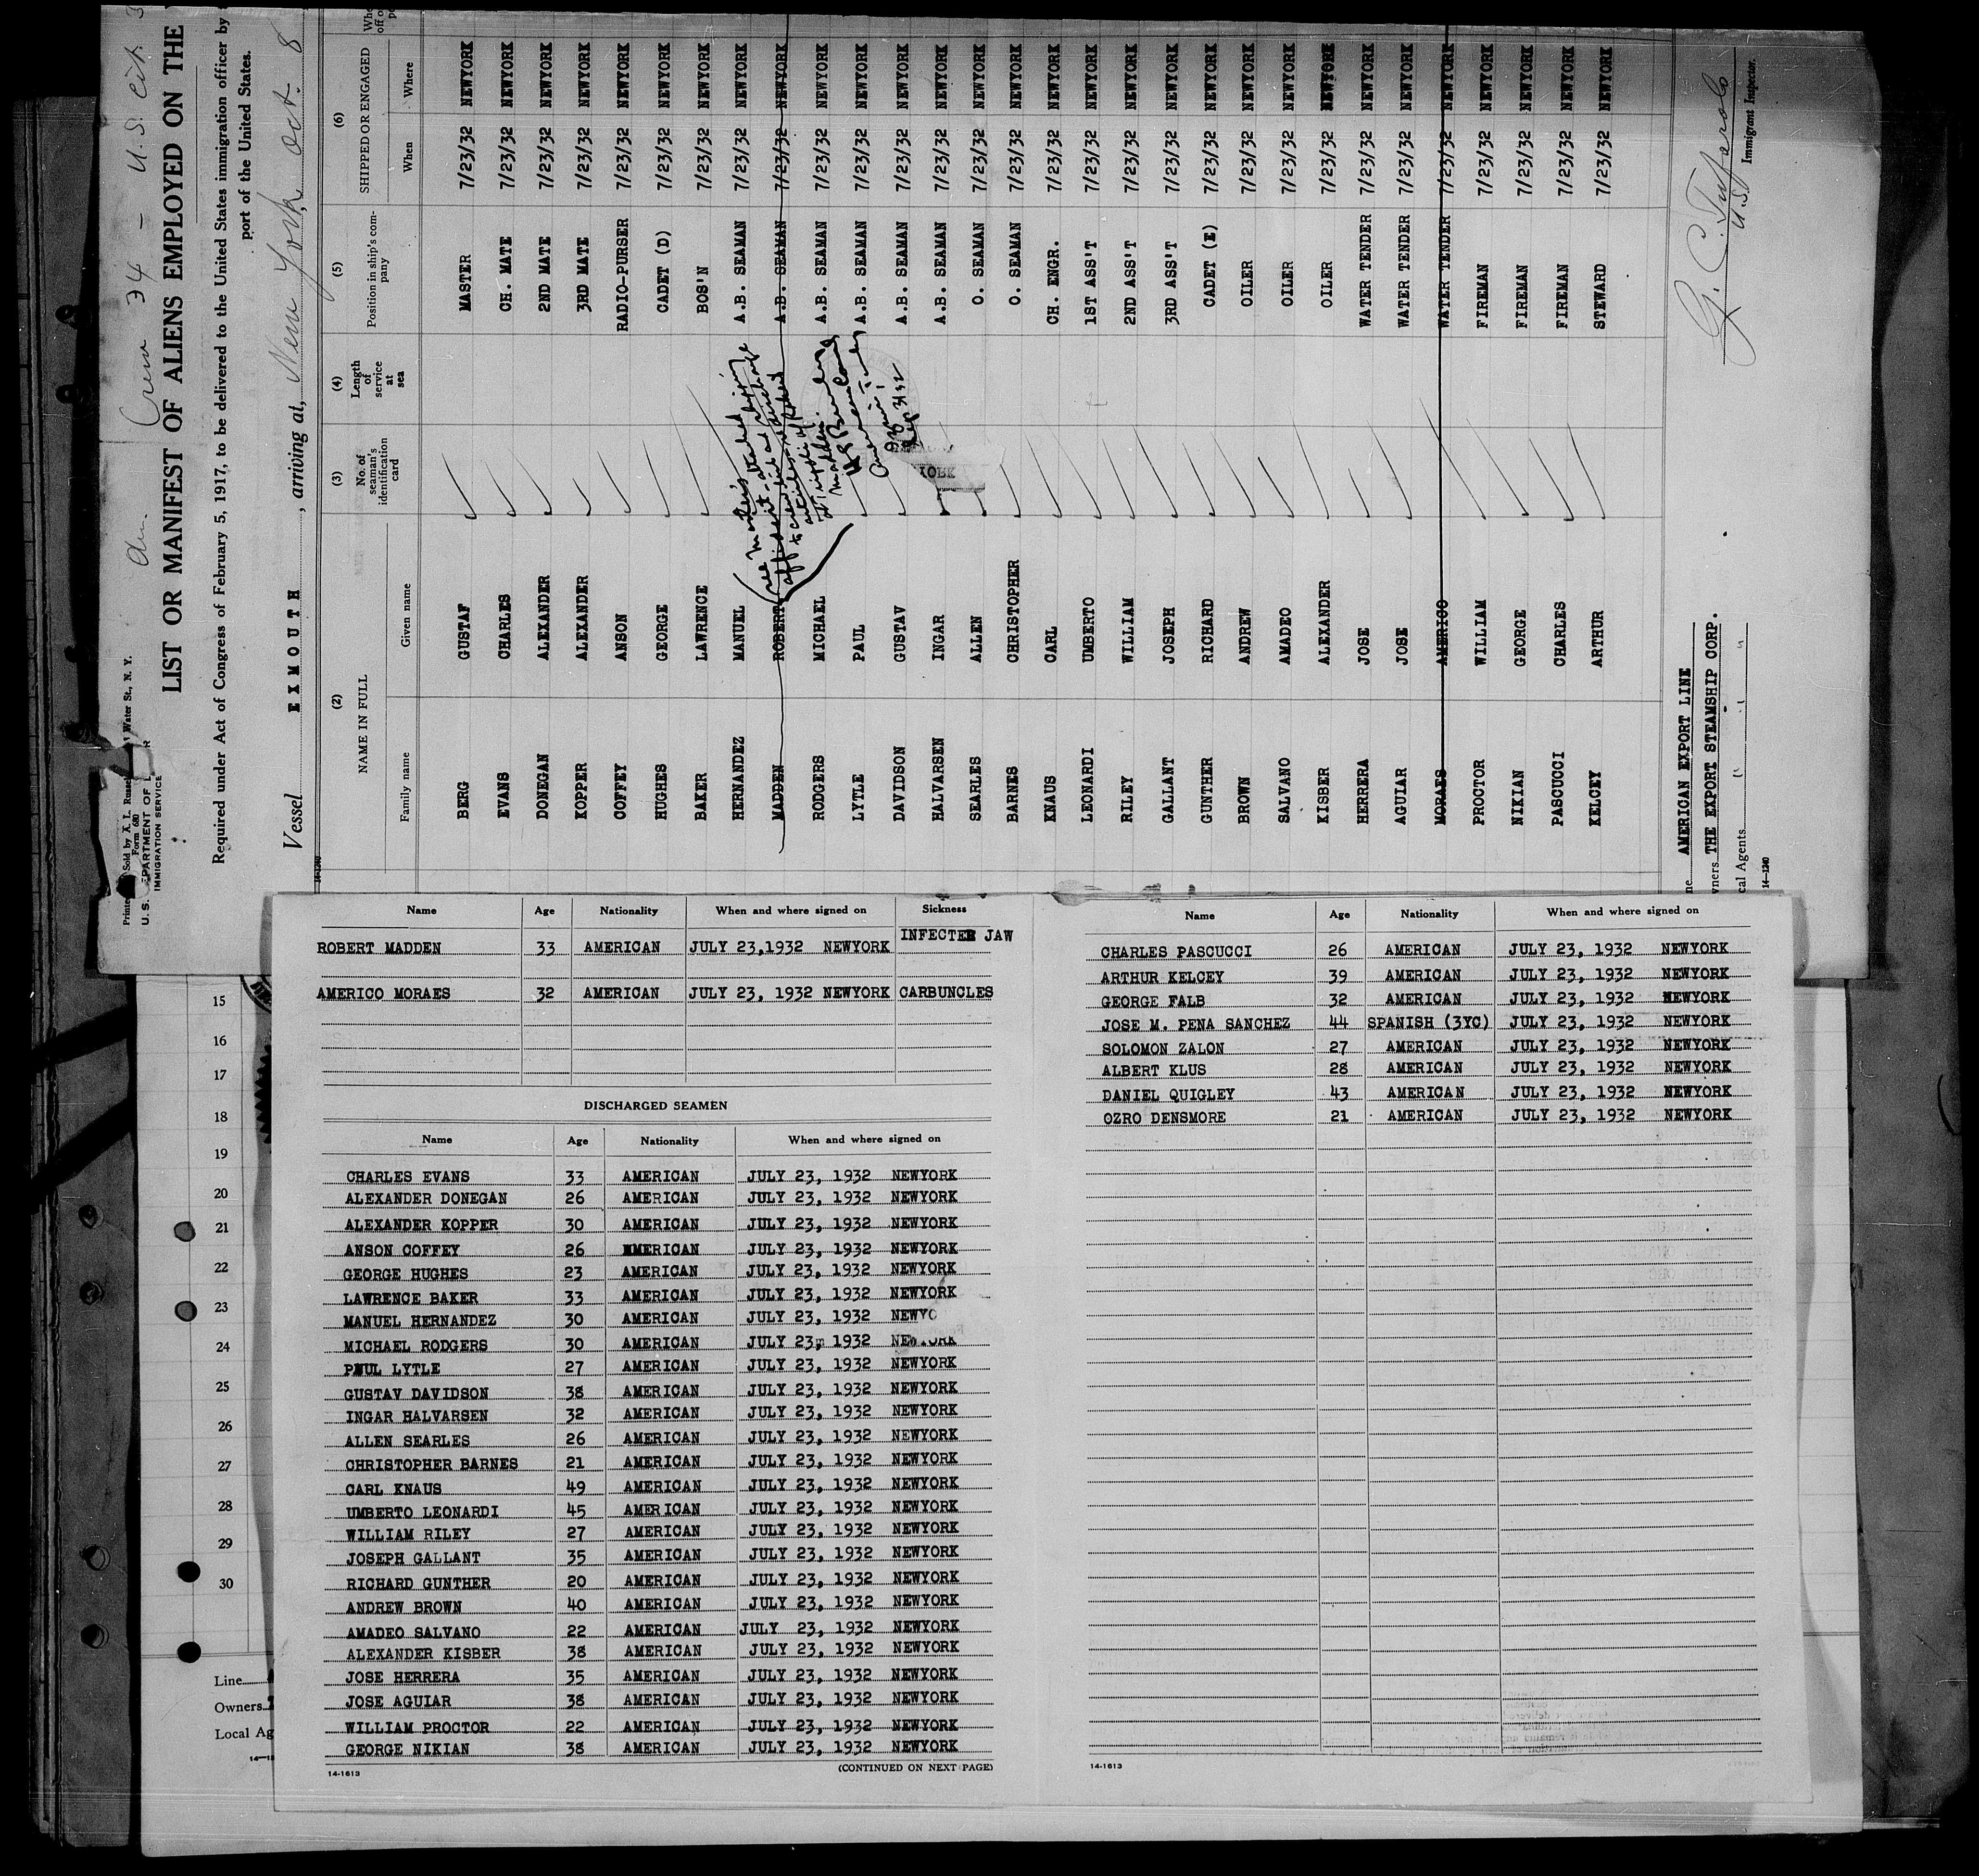 Crew 34 — U.S. cit. 3
Printed Sold by A. L. Russell Water St., N. Y.
Form 680
U. S. DEPARTMENT OF
IMMIGRATION SERVICE
LIST OR MANIFEST OF ALIENS EMPLOYED ON THE
Required under Act of Congress of February 5, 1917, to be delivered to the United States immigration officer by
port of the United States.
Vessel EXMOUTH, arriving at, New York, Oct. 8
14-1240
(2) (3) (4) (5) (6)
NAME IN FULL No. of seaman's identification card Length of service at sea Position in ship's company SHIPPED OR ENGAGED
Family name Given name When Where
BERG GUSTAF MASTER 7/23/32 NEWYORK
EVANS CHARLES CH. MATE 7/23/32 NEWYORK
DONEGAN ALEXANDER 2ND MATE 7/23/32 NEWYORK
KOPPER ALEXANDER 3RD MATE 7/23/32 NEWYORK
COFFEY ANSON RADIO-PURSER 7/23/32 NEWYORK
HUGHES GEORGE CADET (D) 7/23/32 NEWYORK
BAKER LAWRENCE BOS'N 7/23/32 NEWYORK
HERNANDEZ MANUEL A.B. SEAMAN 7/23/32 NEWYORK
MADDEN ROBERT A.B. SEAMAN 7/23/32 NEWYORK
RODGERS MICHAEL A.B. SEAMAN 7/23/32 NEWYORK
LYTLE PAUL A.B. SEAMAN 7/23/32 NEWYORK
DAVIDSON GUSTAV A.B. SEAMAN 7/23/32 NEWYORK
HALVARSEN INGAR A.B. SEAMAN 7/23/32 NEWYORK
SEARLES ALLEN O. SEAMAN 7/23/32 NEWYORK
BARNES CHRISTOPHER O. SEAMAN 7/23/32 NEWYORK
KNAUS CARL CH. ENGR. 7/23/32 NEWYORK
LEONARDI UMBERTO 1ST ASS'T 7/23/32 NEWYORK
RILEY WILLIAM 2ND ASS'T 7/23/32 NEWYORK
GALLANT JOSEPH 3RD ASS'T 7/23/32 NEWYORK
GUNTHER RICHARD CADET (E) 7/23/32 NEWYORK
BROWN ANDREW OILER 7/23/32 NEWYORK
SALVANO AMADEO OILER 7/23/32 NEWYORK
KISBER ALEXANDER OILER 7/23/32 NEWYORK
HERRERA JOSE WATER TENDER 7/23/32 NEWYORK
AGUIAR JOSE WATER TENDER 7/23/32 NEWYORK
MORAES AMERICO WATER TENDER 7/23/32 NEWYORK
PROCTOR WILLIAM FIREMAN 7/23/32 NEWYORK
NIKIAN GEORGE FIREMAN 7/23/32 NEWYORK
PASCUCCI CHARLES FIREMAN 7/23/32 NEWYORK
KELCEY ARTHUR STEWARD 7/23/32 NEWYORK
see Master's
affidavit
Madden
American
AMERICAN EXPORT LINE
THE EXPORT STEAMSHIP CORP.
cal Agents
14-1240
Immigrant Inspector.
Name Age Nationality When and where signed on Sickness
ROBERT MADDEN 33 AMERICAN JULY 23,1932 NEWYORK INFECTED JAW
AMERICO MORAES 32 AMERICAN JULY 23, 1932 NEWYORK CARBUNCLES
DISCHARGED SEAMEN
Name Age Nationality When and where signed on
CHARLES EVANS 33 AMERICAN JULY 23, 1932 NEWYORK
ALEXANDER DONEGAN 26 AMERICAN JULY 23, 1932 NEWYORK
ALEXANDER KOPPER 30 AMERICAN JULY 23, 1932 NEWYORK
ANSON COFFEY 26 AMERICAN JULY 23, 1932 NEWYORK
GEORGE HUGHES 23 AMERICAN JULY 23, 1932 NEWYORK
LAWRENCE BAKER 33 AMERICAN JULY 23, 1932 NEWYORK
MANUEL HERNANDEZ 30 AMERICAN JULY 23, 1932 NEWYO
MICHAEL RODGERS 30 AMERICAN JULY 23, 1932 NEWYORK
PAUL LYTLE 27 AMERICAN JULY 23, 1932 NEWYORK
GUSTAV DAVIDSON 38 AMERICAN JULY 23, 1932 NEWYORK
INGAR HALVARSEN 32 AMERICAN JULY 23, 1932 NEWYORK
ALLEN SEARLES 26 AMERICAN JULY 23, 1932 NEWYORK
CHRISTOPHER BARNES 21 AMERICAN JULY 23, 1932 NEWYORK
CARL KNAUS 49 AMERICAN JULY 23, 1932 NEWYORK
UMBERTO LEONARDI 45 AMERICAN JULY 23, 1932 NEWYORK
WILLIAM RILEY 27 AMERICAN JULY 23, 1932 NEWYORK
JOSEPH GALLANT 35 AMERICAN JULY 23, 1932 NEWYORK
RICHARD GUNTHER 20 AMERICAN JULY 23, 1932 NEWYORK
ANDREW BROWN 40 AMERICAN JULY 23, 1932 NEWYORK
AMADEO SALVANO 22 AMERICAN JULY 23, 1932 NEWYORK
ALEXANDER KISBER 38 AMERICAN JULY 23, 1932 NEWYORK
JOSE HERRERA 35 AMERICAN JULY 23, 1932 NEWYORK
JOSE AGUIAR 38 AMERICAN JULY 23, 1932 NEWYORK
WILLIAM PROCTOR 22 AMERICAN JULY 23, 1932 NEWYORK
GEORGE NIKIAN 38 AMERICAN JULY 23, 1932 NEWYORK
14-1613 (CONTINUED ON NEXT PAGE)
Name Age Nationality When and where signed on
CHARLES PASCUCCI 26 AMERICAN JULY 23, 1932 NEWYORK
ARTHUR KELCEY 39 AMERICAN JULY 23, 1932 NEWYORK
GEORGE FALB 32 AMERICAN JULY 23, 1932 NEWYORK
JOSE M. PENA SANCHEZ 44 SPANISH (3YC) JULY 23, 1932 NEWYORK
SOLOMON ZALON 27 AMERICAN JULY 23, 1932 NEWYORK
ALBERT KLUS 28 AMERICAN JULY 23, 1932 NEWYORK
DANIEL QUIGLEY 43 AMERICAN JULY 23, 1932 NEWYORK
OZRO DENSMORE 21 AMERICAN JULY 23, 1932 NEWYORK
14-1613
15
16
17
18
19
20
21
22
23
24
25
26
27
28
29
30
Line
Owners
Local Ag